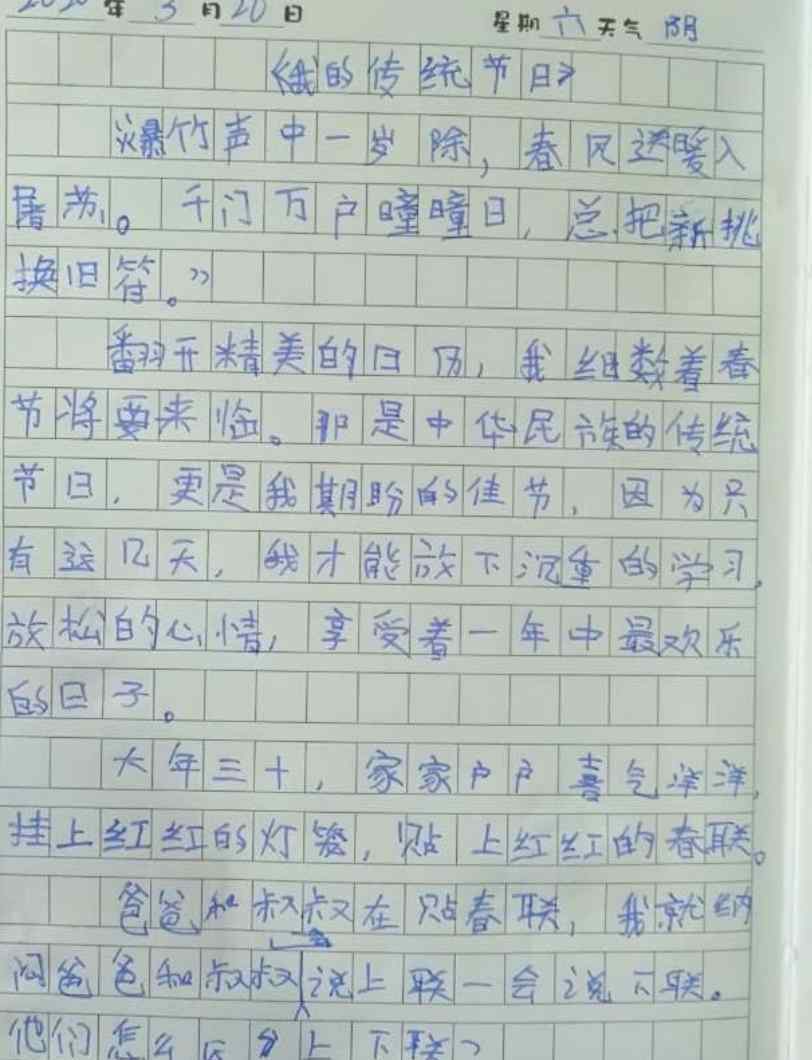 年3月20日 星期六天气阴
《我的传统节日》
爆竹声中一岁除，春风送暖入
屠苏。千门万户瞳瞳日，总把新挑
换旧符。”
翻开精美的日历，我细数着春
节将要来临。那是中华民族的传统
节日，更是我期盼的佳节，因为只
有这几天，我才能放下沉重的学习，
放松的心情，享受着一年中最欢乐
的日子。
大年三十，家家户户喜气洋洋，
挂上红红的灯笼，贴上红红的春联。
爸爸和叔叔在贴春联，我就纳
闷爸爸和叔叔说上联一会说下联。
他们怎么区分上下联？